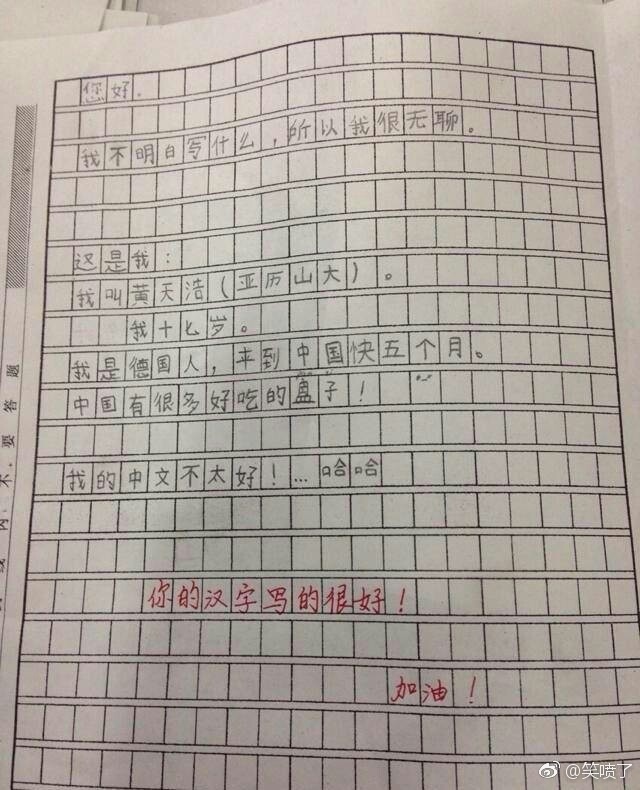 您好.
我不明白写什么,所以我很无聊。
这是我:
我叫黄天浩(亚历山大)。
我十七岁。
我是德国人,来到中国快五个月。
中国有很多好吃的盒子!
我的中文不太好!...哈哈
你的汉字写的很好!
加油!
要答题
@笑喷了